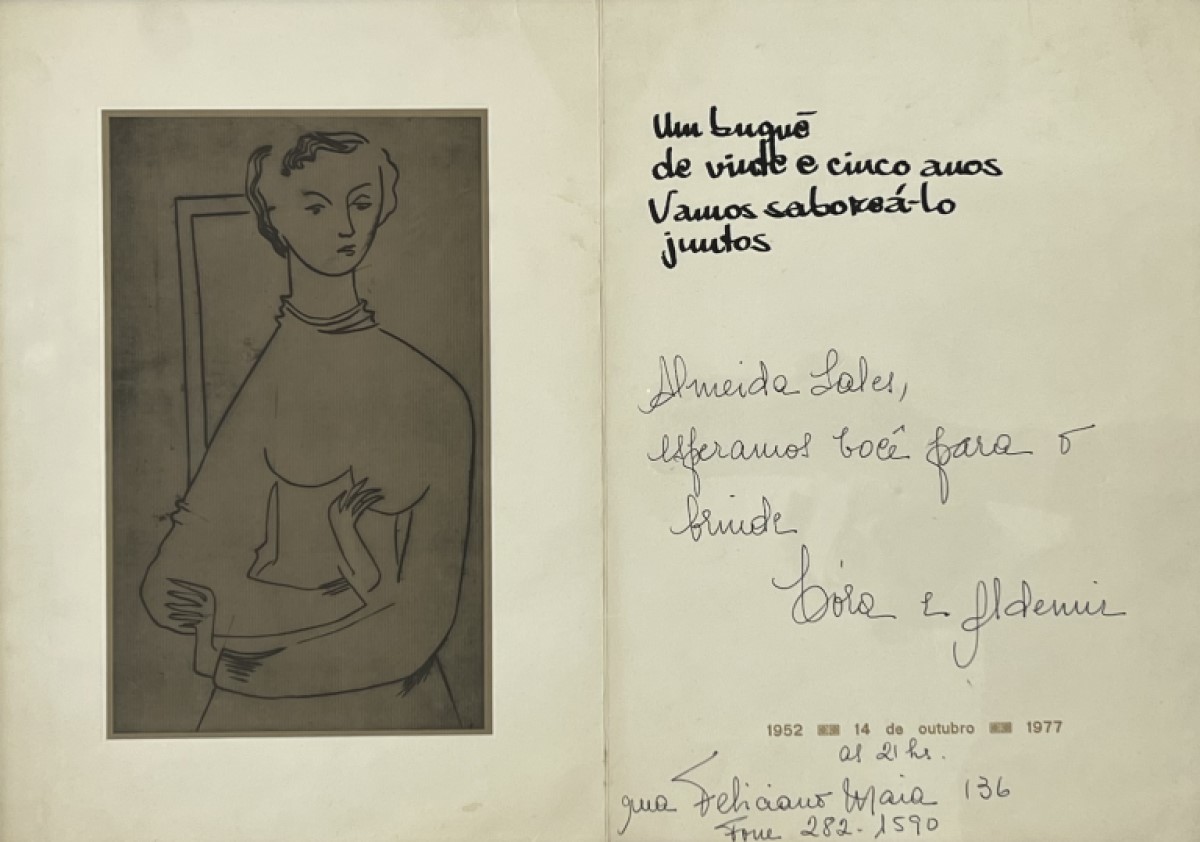 Um buquê
de vinte e cinco anos
Vamos saboreá-lo
juntos
Almeida Sales,
esperamos você para o
brinde
Córa e Aldemir
1952 14 de outubro 1977
as 21 hs.
rua Feliciano Maia 136
Fone 282-1590